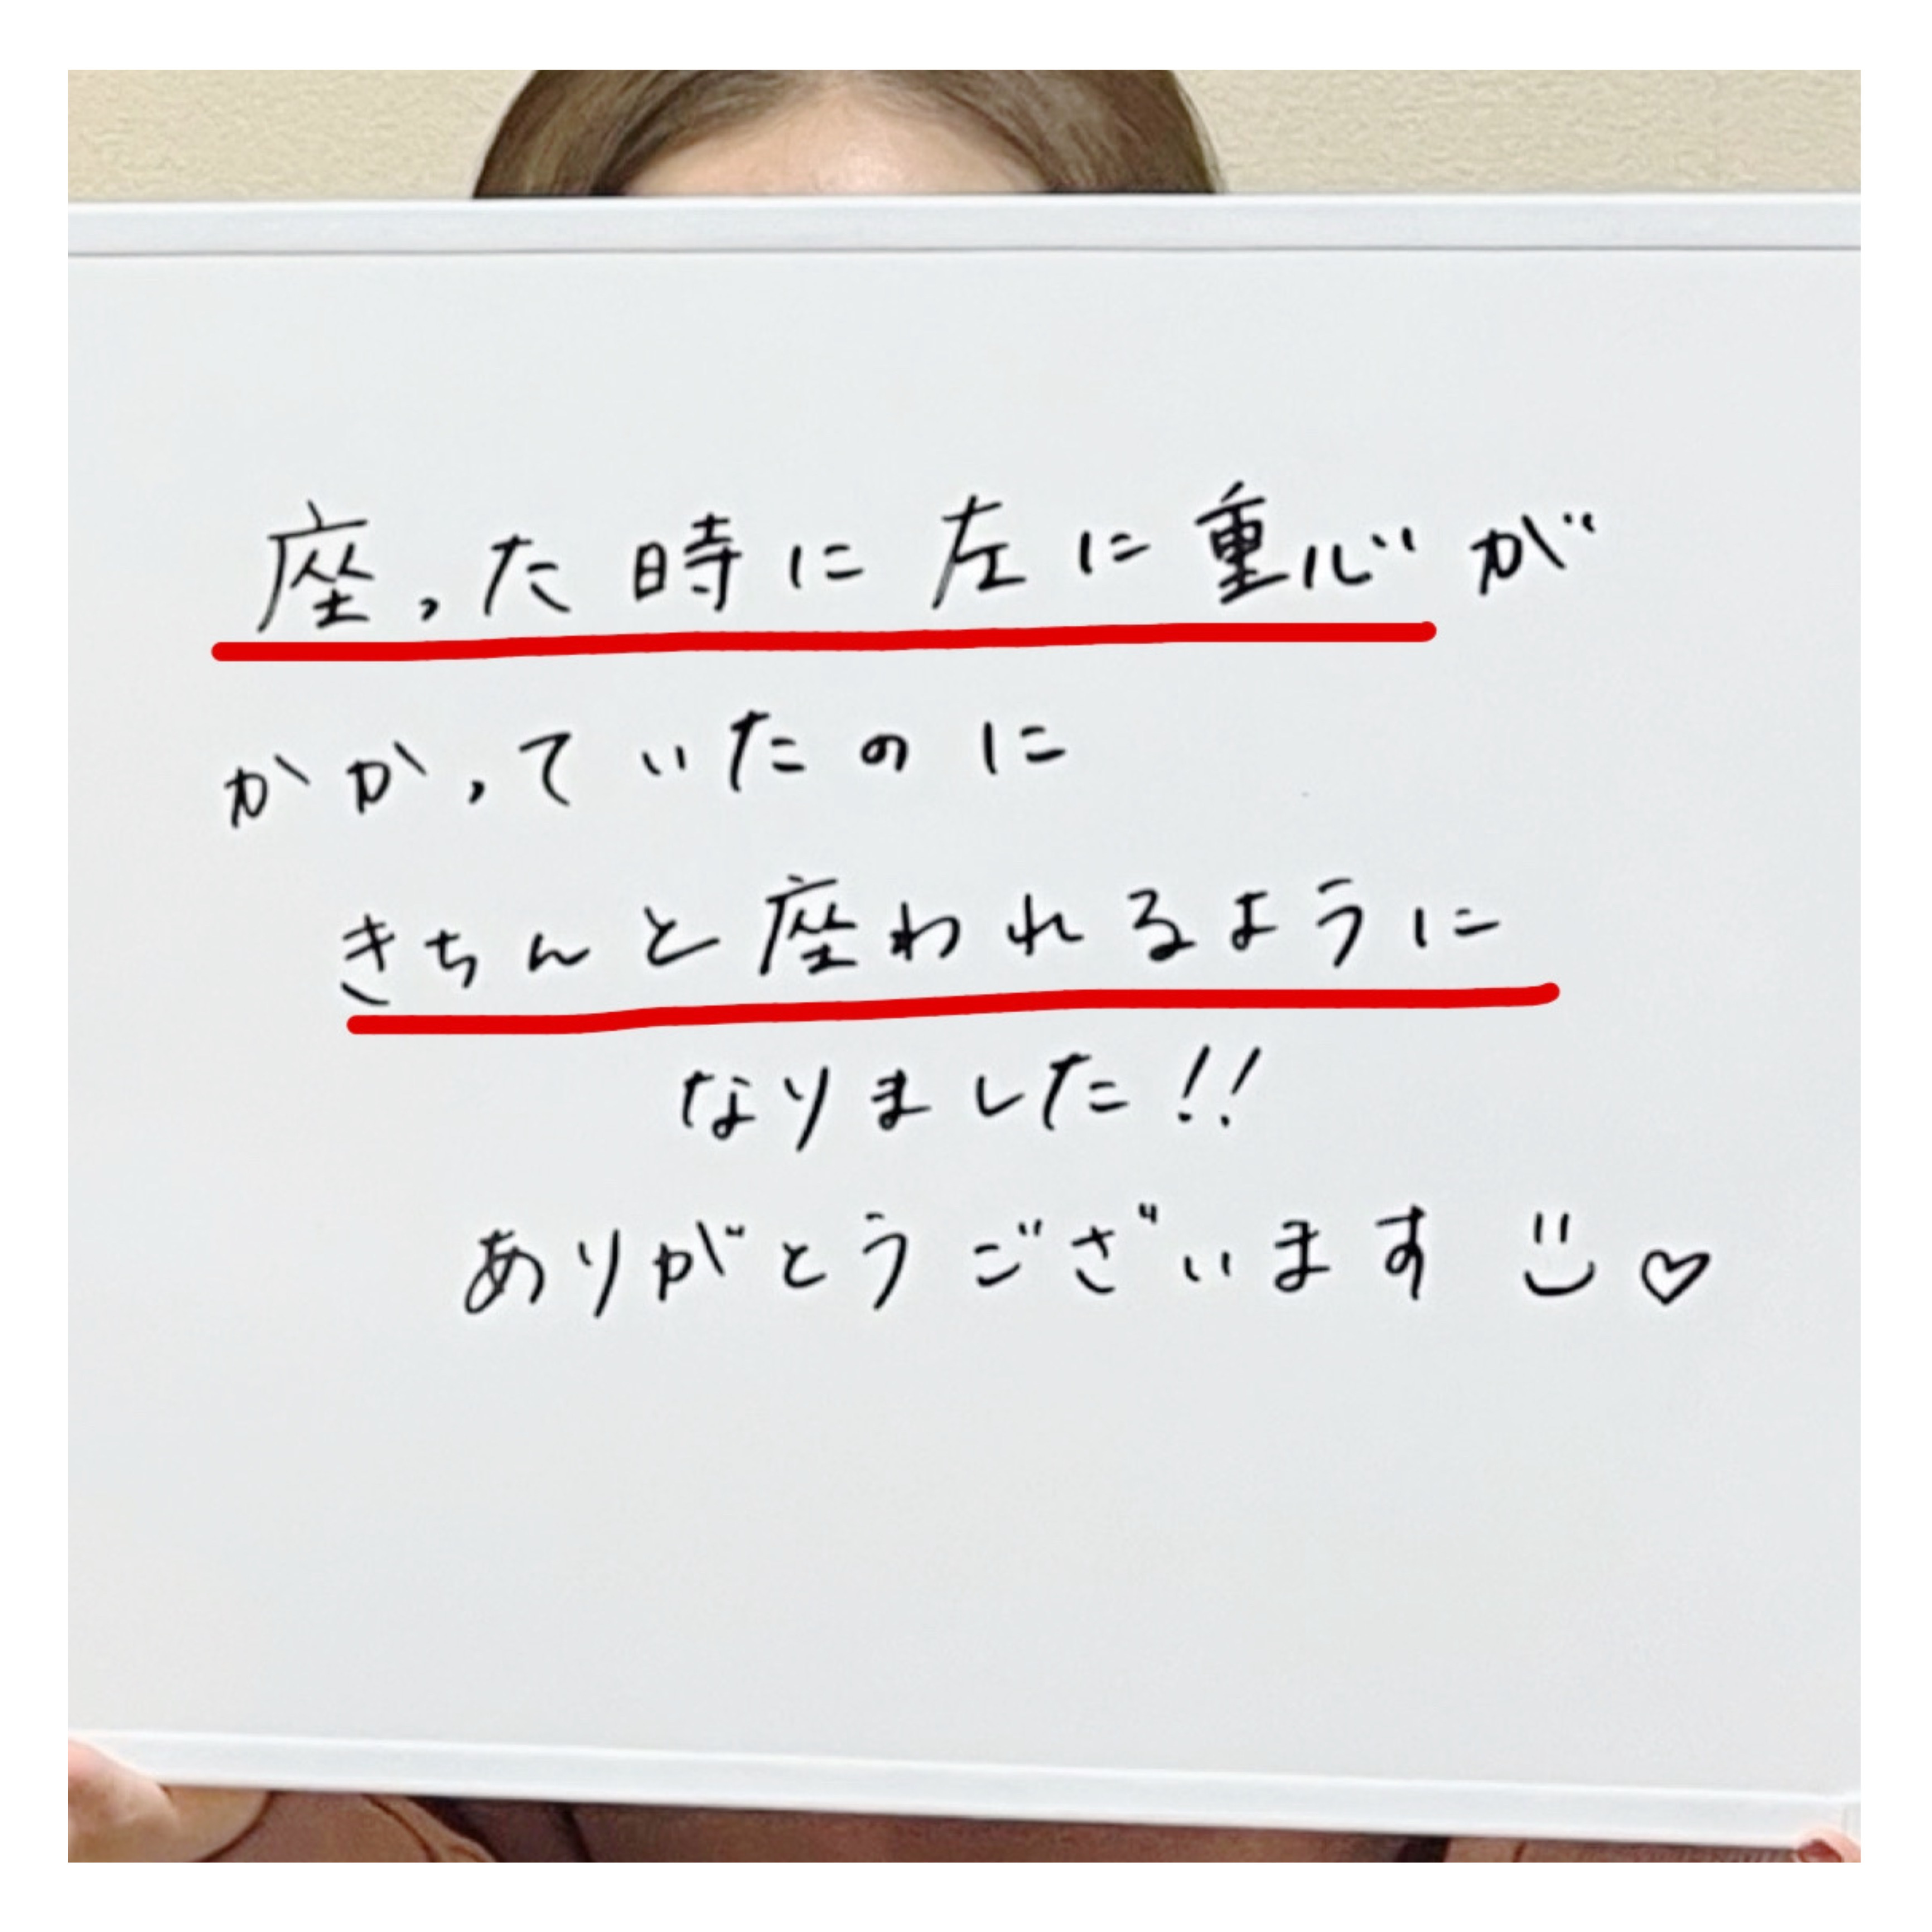 座った時に左に重心が
かかっていたのに
きちんと座われるように
なりました!!
ありがとうございます